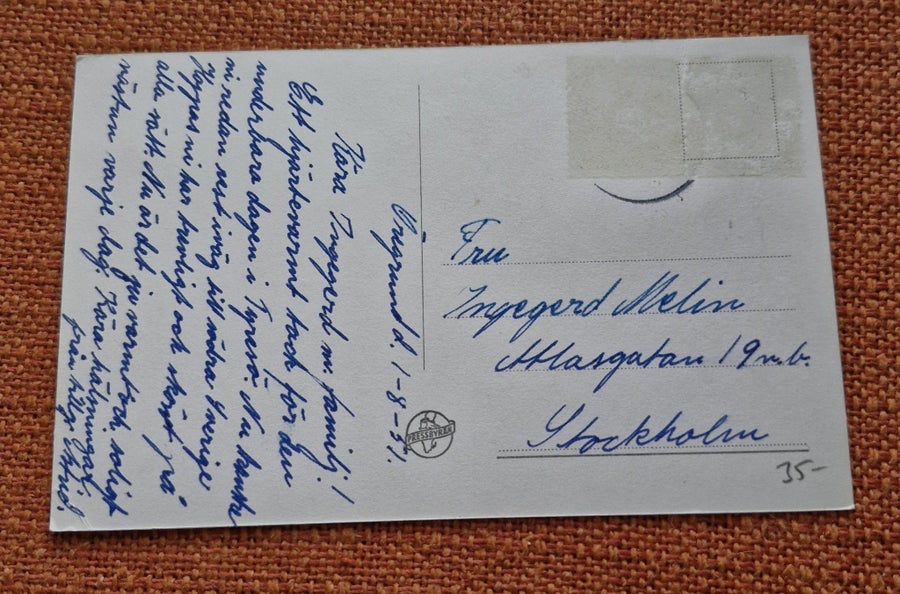 d. 1-8-51.
Kära Ingegerd m. familj!
Ett hjärtevarmt tack för den
underbara dagen i Tyresö. Nu kanske
ni redan rest iväg till södra Sverige
Hoppas ni har trevligt och skönt på
alla sätt. Nu är det ju varmt och soligt
nästan varje dag. Kära hälsningar
från
PRESSBYRÅN
Fru
Ingegerd Melin
Atlasgatan 19 n.b.
Stockholm
35-